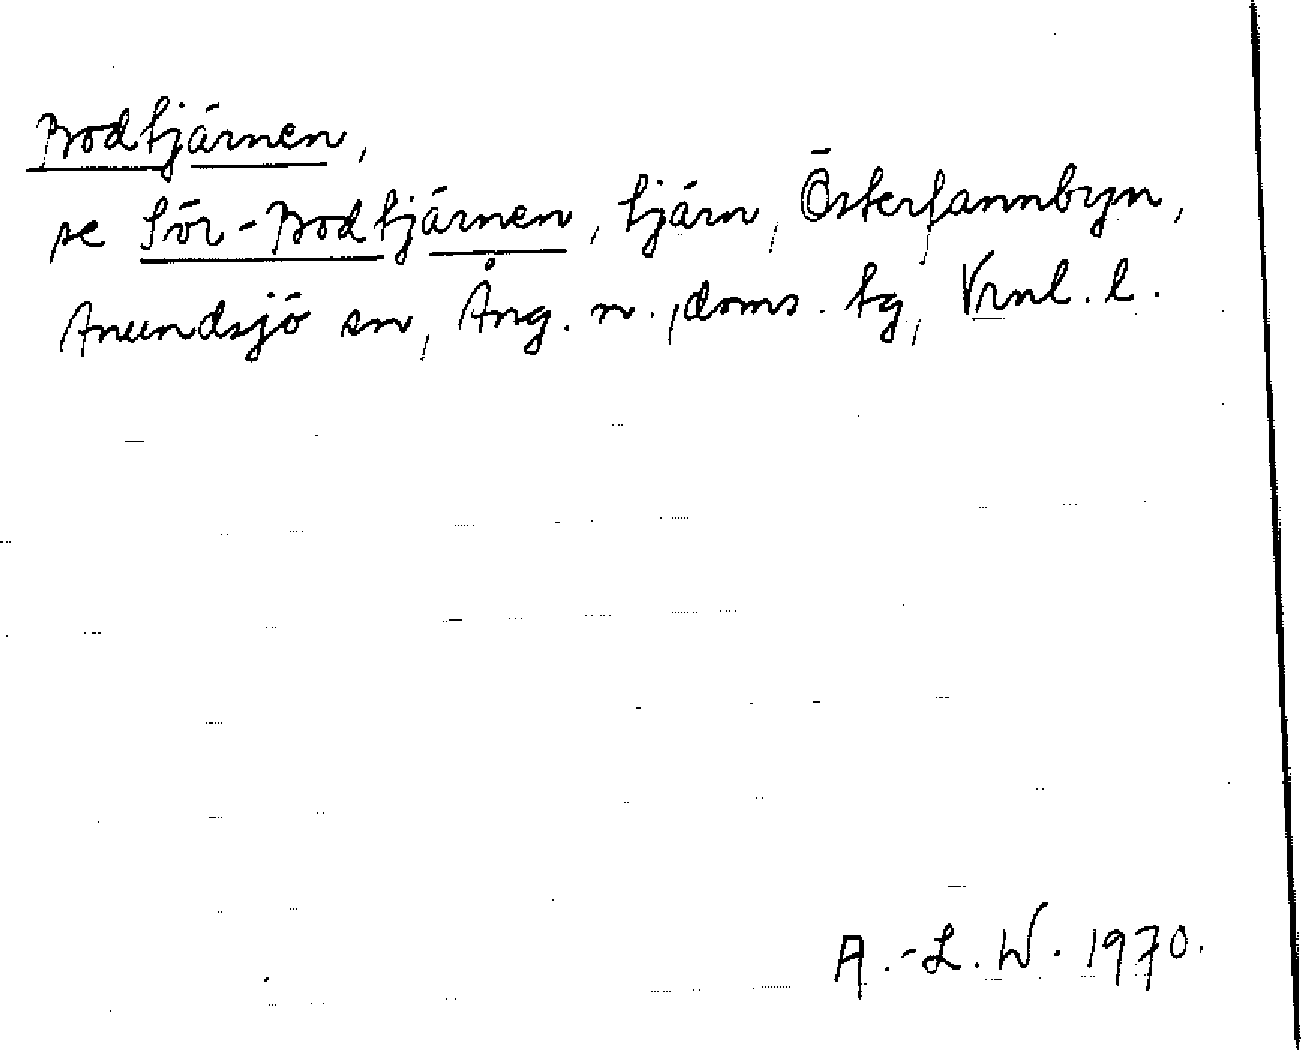 Bodtjärnen,
se Sör-Bodtjärnen, tjärn, Österfannbyn,
Anundsjö sn, Ång. n., doms. tg, Vrnl. l.
A.-L. W. 1970.